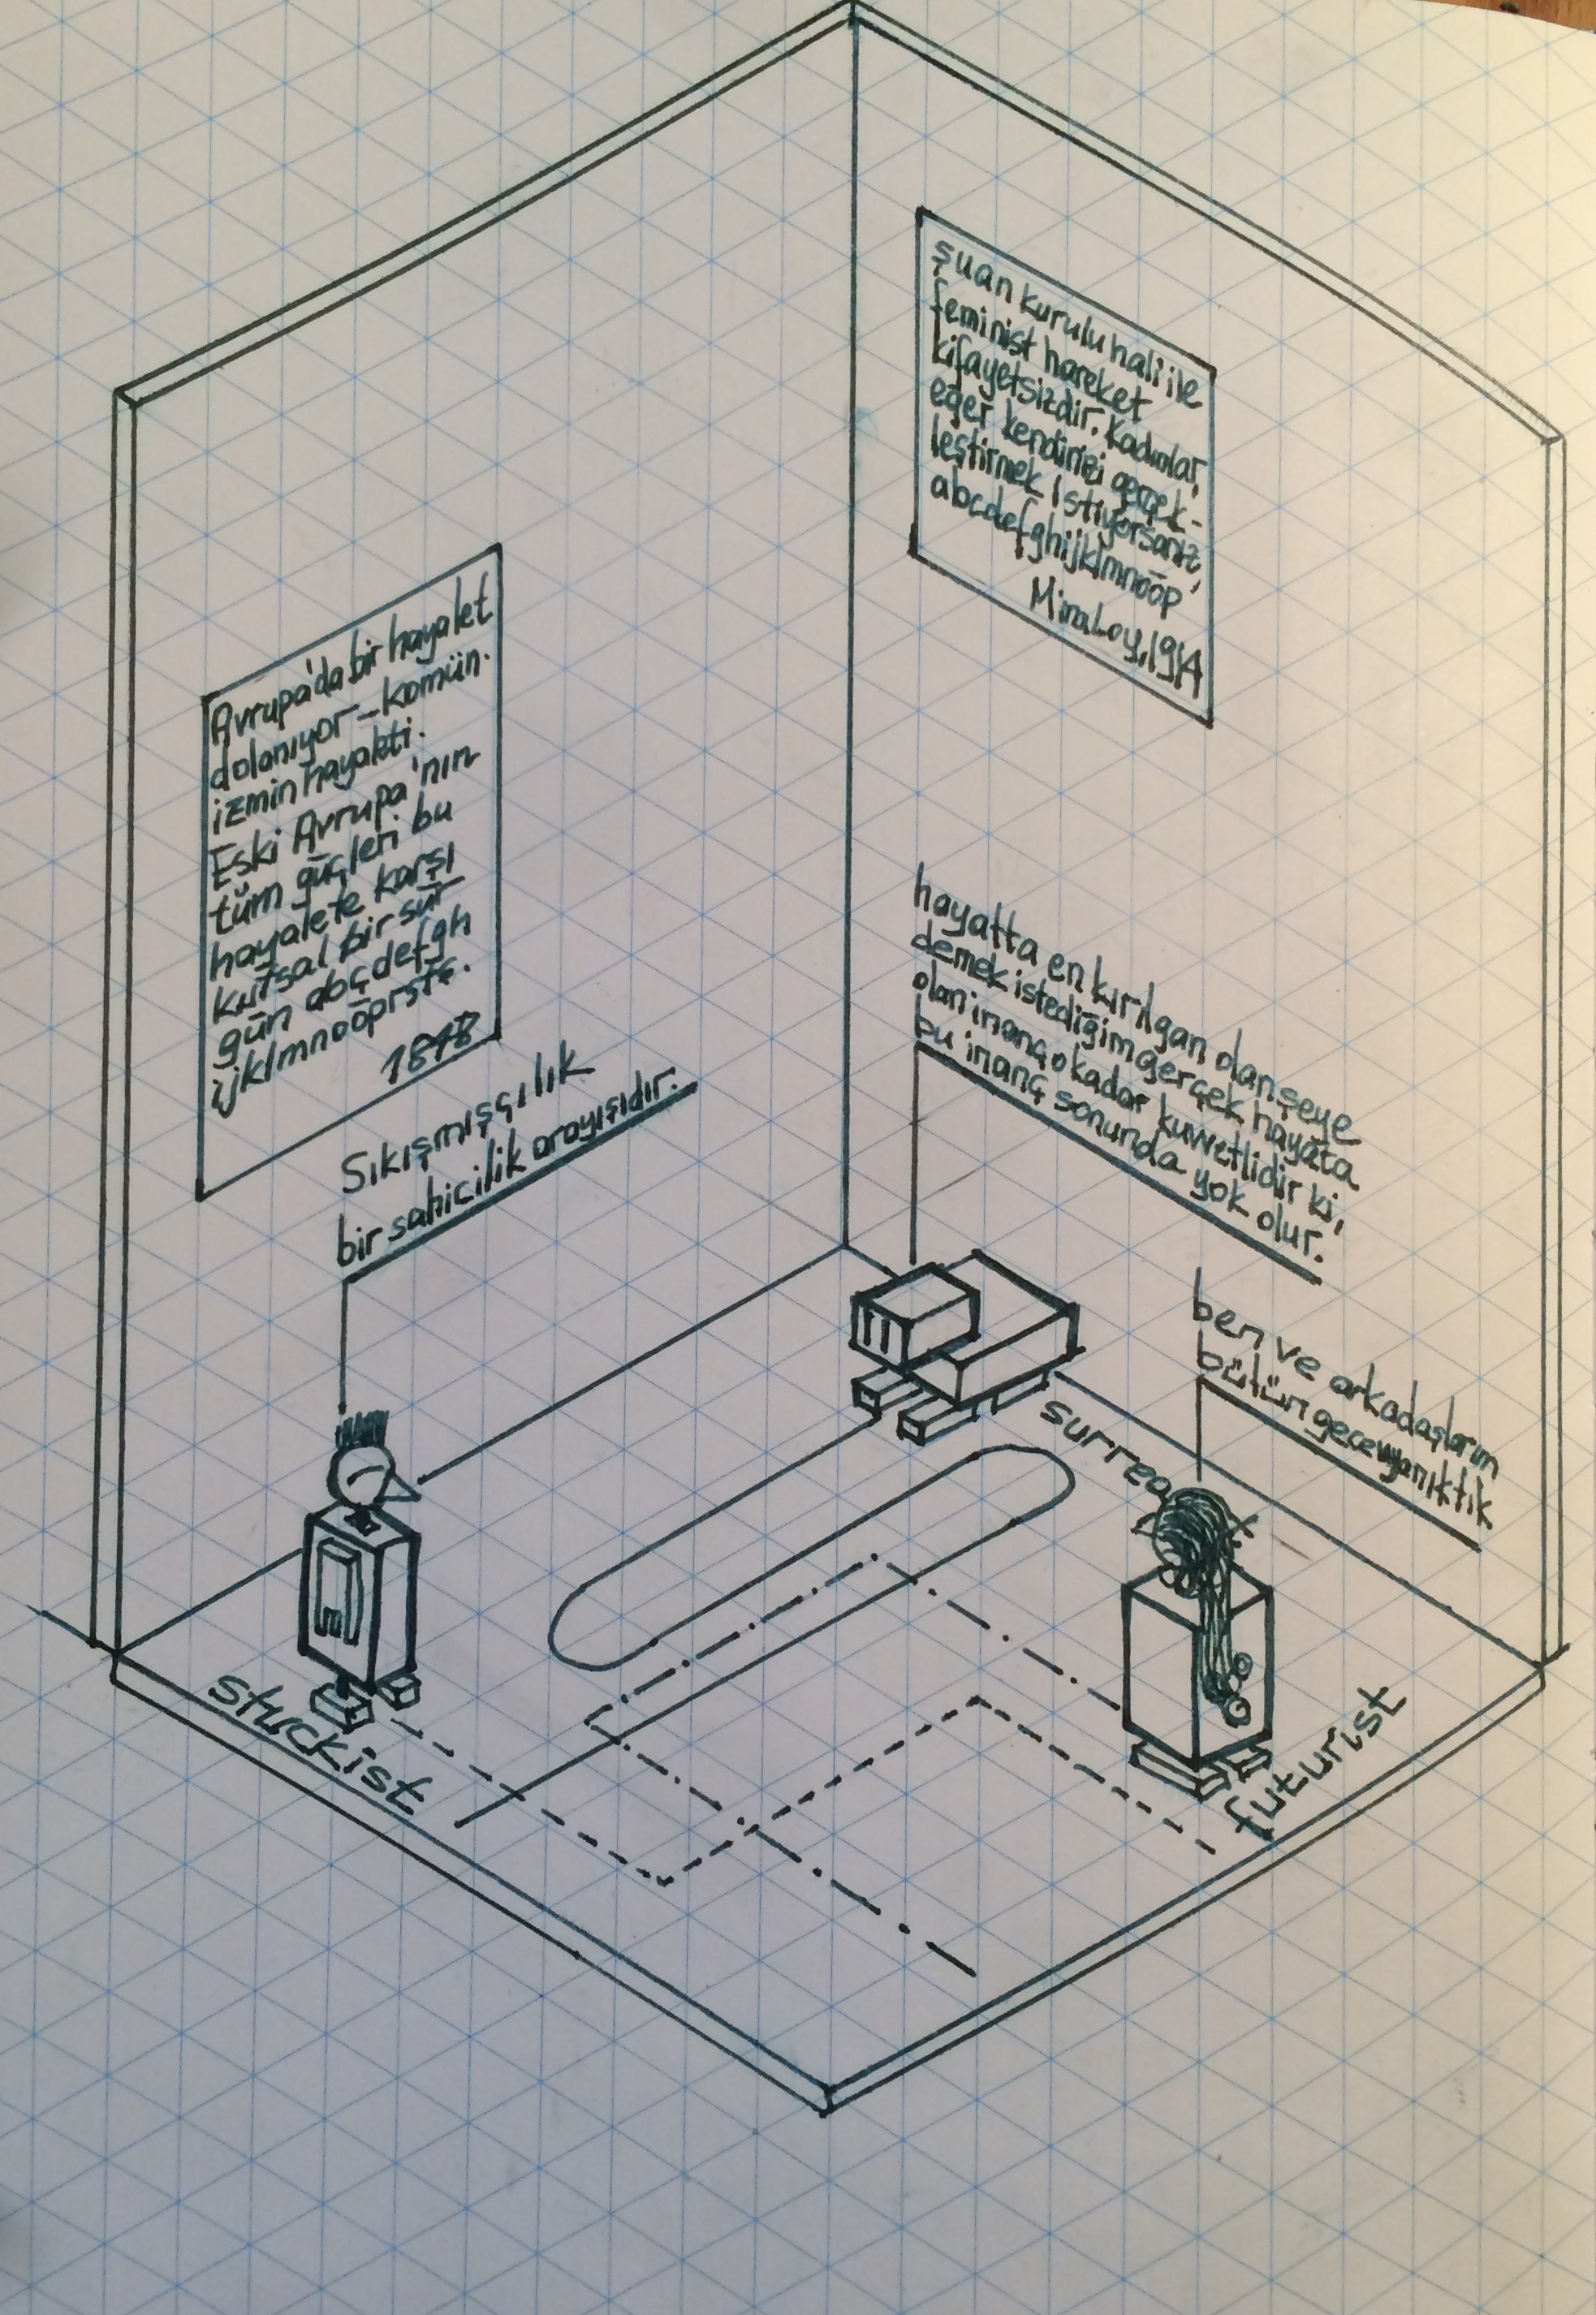 Avrupa'da bir hayalet
dolanıyor - komün.
izmin hayaleti.
Eski Avrupa'nın
tüm güçleri bu
hayalete karşı
kutsal bir sür
gün abçdefgh
ijklmnoöprstş.
1848
şuan kurulu hali ile
feminist hareket
kifayetsizdir. Kadınlar,
eğer kendinizi gerçek-
leştirmek istiyorsanız,
abcdefghijklmnoöp
Mina Loy, 1914
Sıkışmışçılık
bir sahicilik arayışıdır.
hayatta en kırılgan olan şeye
demek istediğim gerçek hayata
olan inanç o kadar kuvvetlidir ki,
bu inanç sonunda yok olur.
ben ve arkadaşlarım
bütün gece uyanıktık
surrea
stuckist
futurist